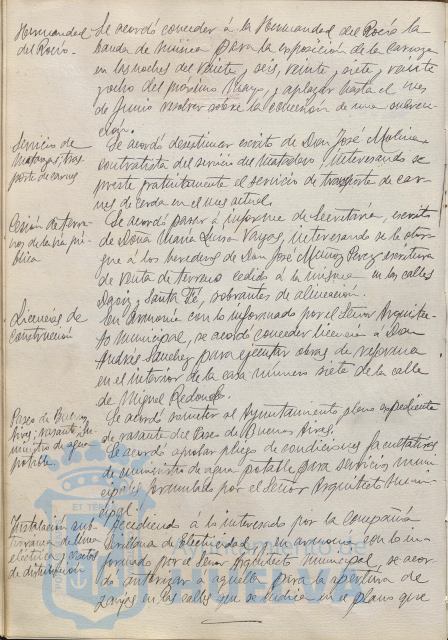 Hermandad del Rocío.
Se acordó conceder á la Hermandad del Rocío la
banda de música para la exposición de la carroza
en las noches del veinte y seis, veinte y siete y veinte
y ocho del próximo Mayo, y aplazar hasta el mes
de Junio resolver sobre la concesión de una subven-
ción.
Servicio de
Matanza, tras-
porte de carnes
Se acordó desestimar escrito de Don José Molina,
contratista del servicio del Matadero, interesando se
preste gratuitamente el servicio de transporte de car-
nes de cerda en el mes actual.
Cesión de terre-
nos de la vía pú-
blica
Se acordó pasar á informe de Secretaría, escrito
de Doña María Luisa Vargas, interesando se le otor-
gue á los herederos de Don José Muñoz Perez escritura
de venta de terreno cedido á la misma en las calles
y Santa Fé, sobrantes de alineación.
Licencias de
construcción
En armonía con lo informado por el Señor Arquitec-
to Municipal, se acordó conceder licencia á Don
Andrés Sanchez para ejecutar obras de reforma
en el interior de la casa número siete de la calle
de Miguel Redondo.
Paseo de Buenos
Aires; rasante. Su-
ministro de agua
potable.
Se acordó someter al Ayuntamiento plano expediente
de rasante del Paseo de Buenos Aires.
Se acordó aprobar pliego de condiciones facultativas
de suministro de agua potable para servicios muni-
cipales formulado por el Señor Arquitecto Muni-
cipal.
Instalación sub-
terránea de línea
eléctrica y casetas
de distribución
Accediendo á lo interesado por la Compañía
Sevillana de Electricidad y en armonía con lo in-
formado por el Señor Arquitecto Municipal, se acor-
dó autorizar á aquella para la apertura de
zanjas en las calles que se indica en el plano que
Ayuntamiento de
HUELVA